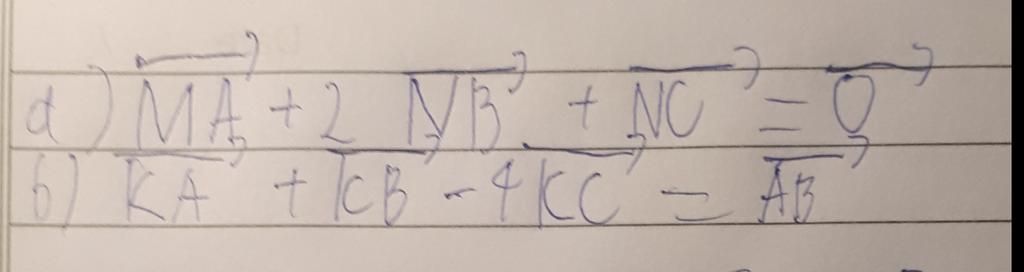 a) \overrightarrow{MA} + 2 \overrightarrow{NB} + \overrightarrow{NC} = \overrightarrow{0}
b) \overrightarrow{KA} + \overrightarrow{KB} - 4 \overrightarrow{KC} = \overrightarrow{AB}